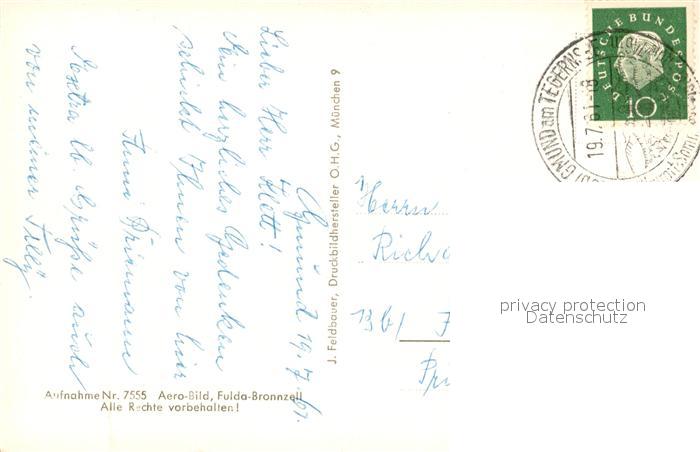 Gmünd 19.7.61.
Lieber Herr Klett!
Ein herzliches Gedenken
schickt Ihnen von hier
Anni
Extra lb. Grüße auch
von meiner Tilly.
J. Feldbauer, Druckbildhersteller O.H.G., München 9
Aufnahme Nr. 7555 Aero-Bild, Fulda-Bronnzell
Alle Rechte vorbehalten!
DEUTSCHE BUNDESPOST
10
GMUND am TEGERNS
19.7.61-18
Herrn
13b/
privacy protection
Datenschutz